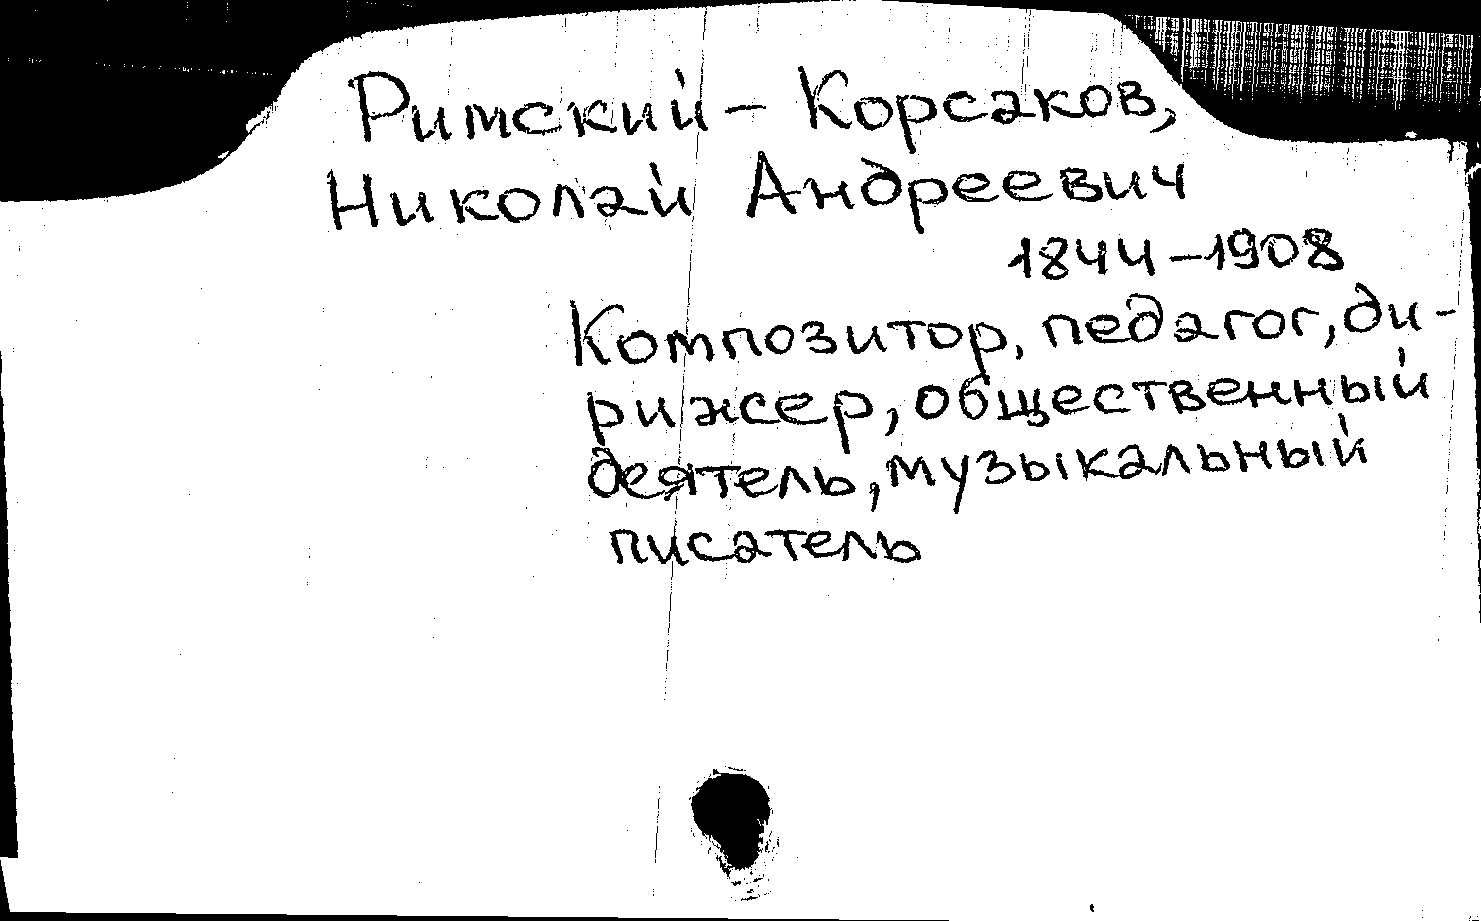 Римский - Корсаков,
Николай Андреевич
1844-1908
Композитор, педагог, ди-
рижсер, общественный
деятель, музыкальный
писатель